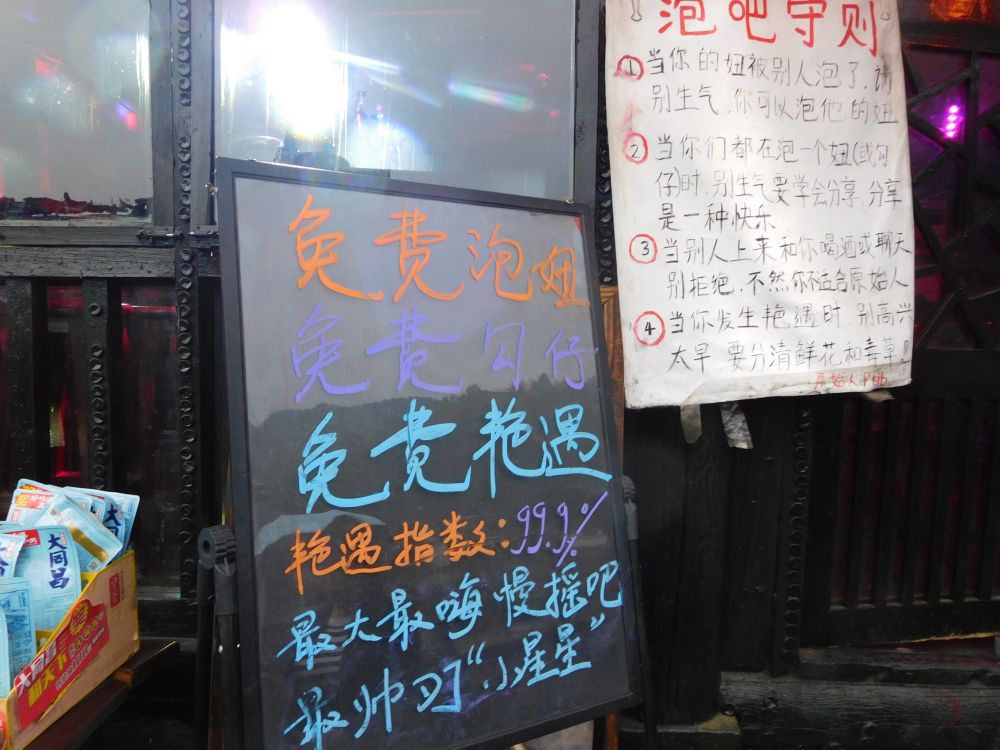 泡吧守则
①当你的妞被别人泡了,请
别生气,你可以泡他的妞
②当你们都在泡一个妞(或勾
仔)时,别生气要学会分享,分享
是一种快乐
③当别人上来和你喝酒或聊天
别拒绝,不然你不适合原始人
④当你发生艳遇时,别高兴
太早,要分清鲜花和毒草!
原始人Pub
免费泡妞
免费勾仔
免费艳遇
艳遇指数:99.9%
最大最嗨慢摇吧
最帅DJ“小星星”
大同昌
大同昌
和天下